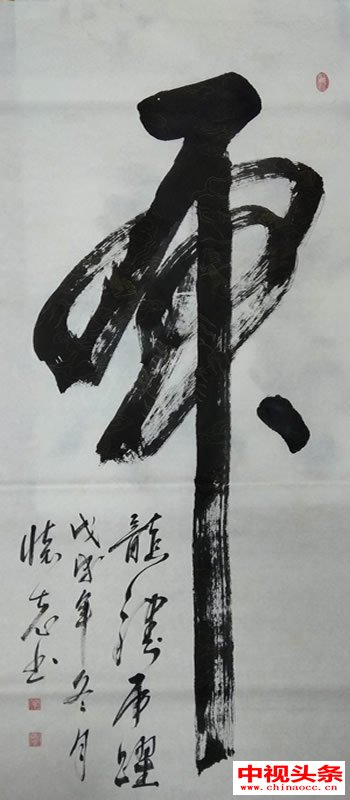 虎
龍騰虎躍
戊戌年冬月
懷志书
中视头条
www.chinaocc.cn